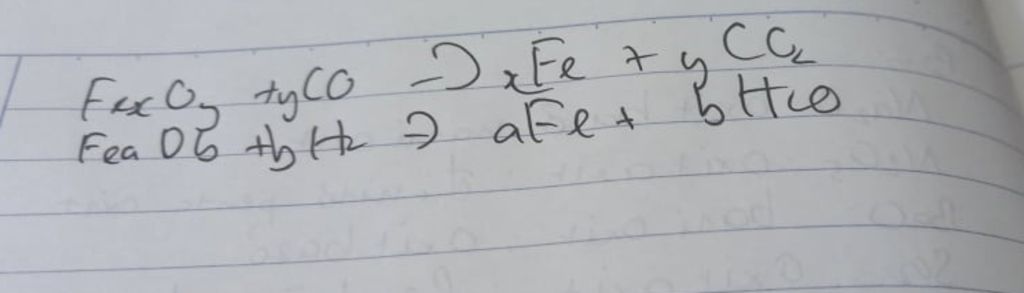 FexOy +yCO -> xFe + yCO2
FeaOb +bH2 => aFe + bH2O